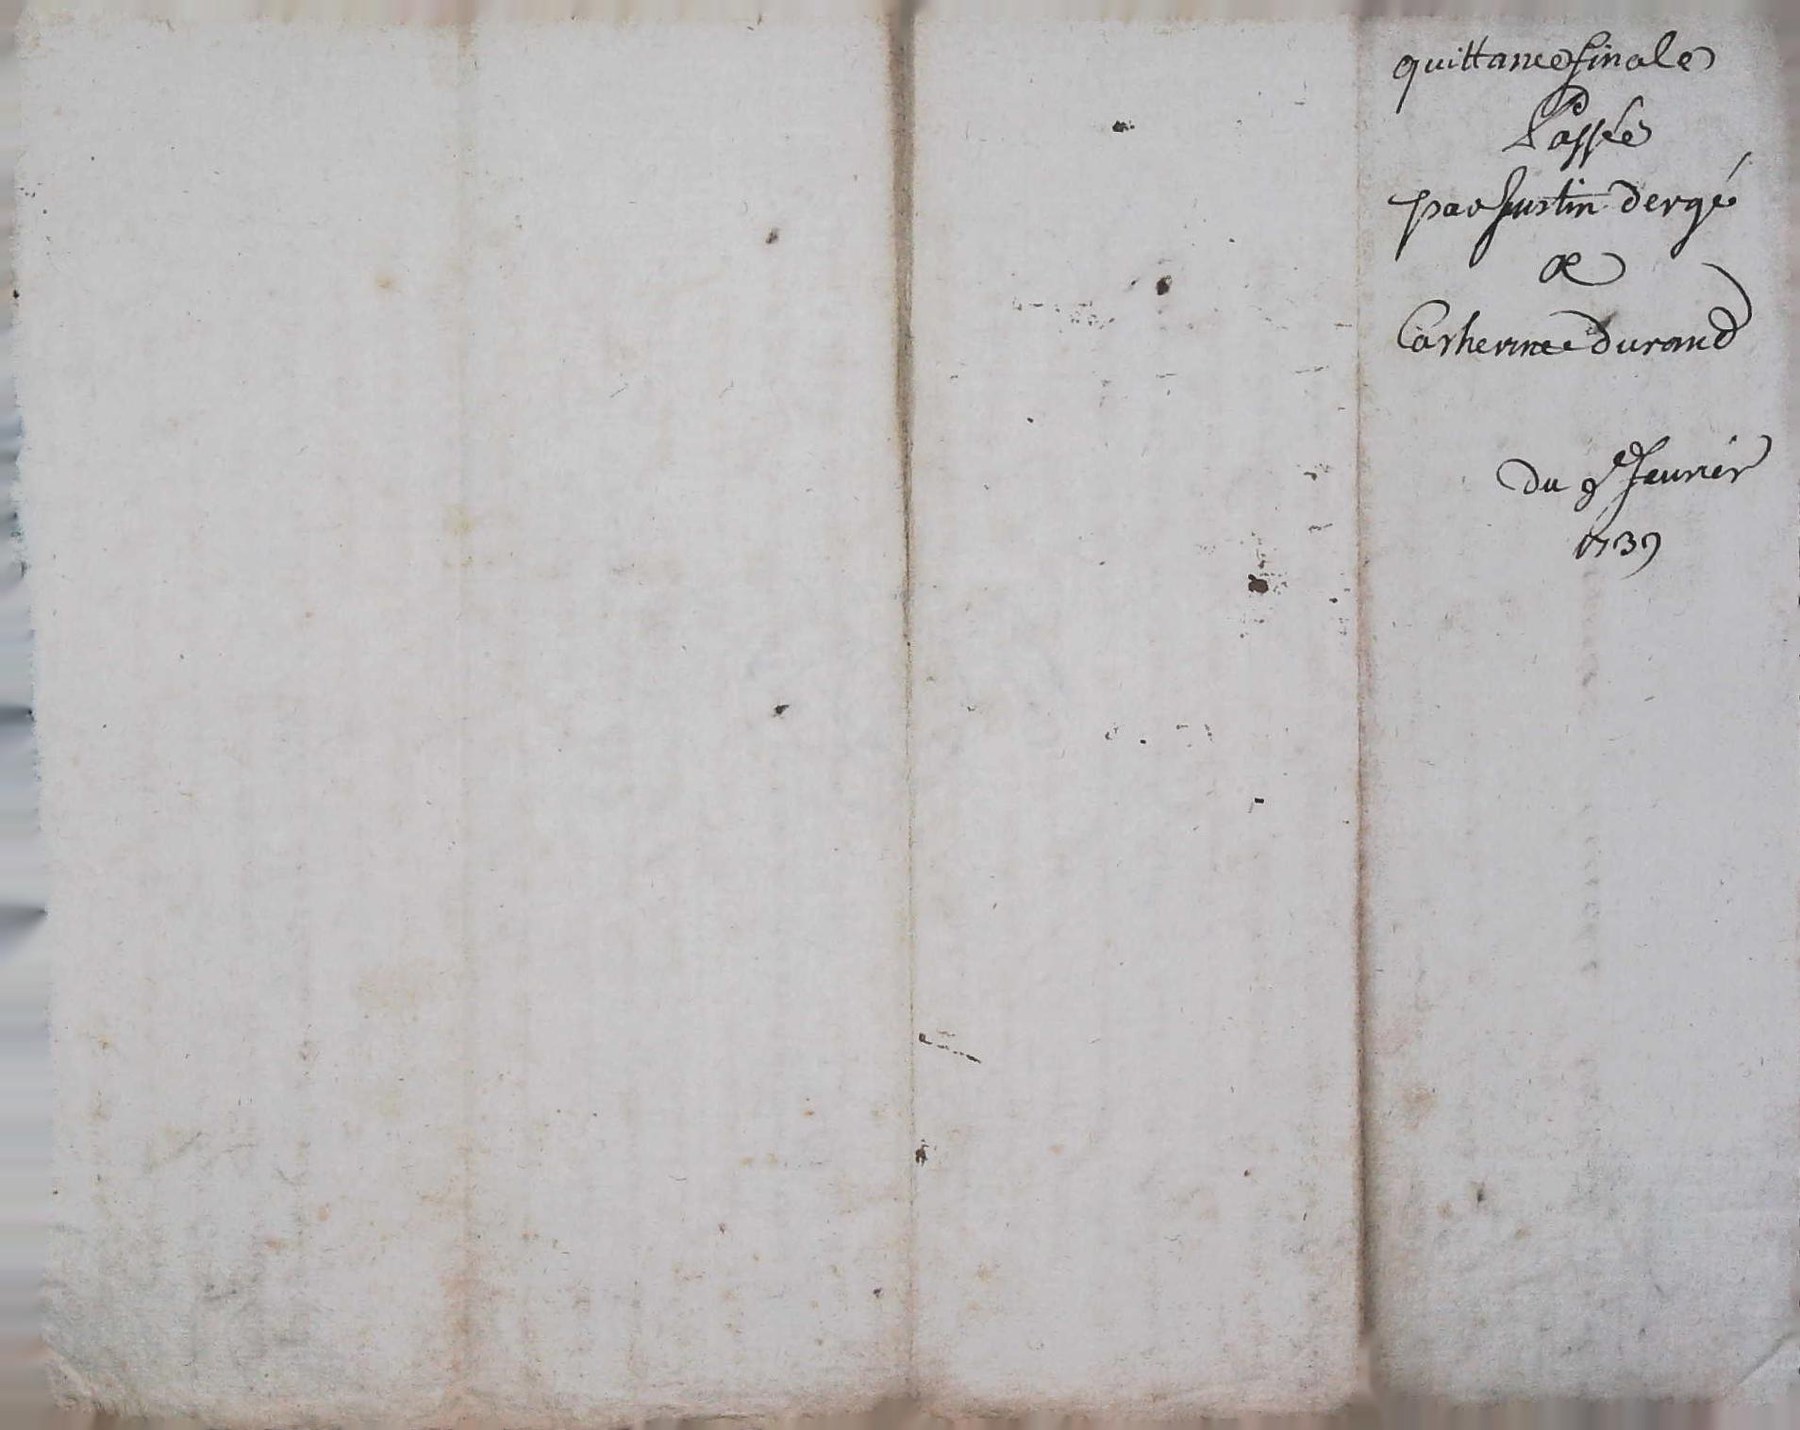 quittance finale
Passée
par Justin dergé
&
Catherinne Durand
du 9e feurier
1739